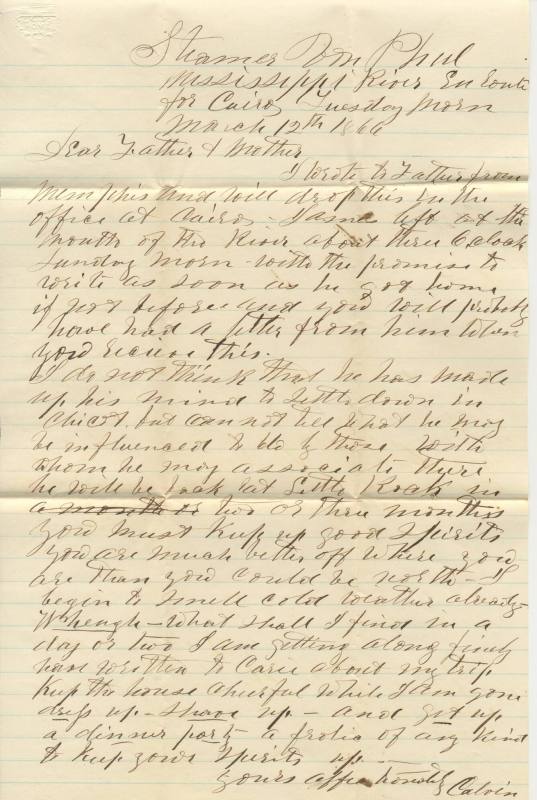 Steamer Von Phul
Mississippi River En Route
for Cairo, Tuesday Morn
March 12th 1866
Dear Father & Mother
I wrote to Father from
Memphis and will drop this in the
office at Cairo - James left at the
mouth of the River about three O,clock
Sunday Morn - with the promise to
write as soon as he got home
if not before and you will probably
have had a letter from him when
you recieve this.
I do not think that he has made
up his mind to settle down in
Chicot, but can not tell what he may
be influenced to do by those with
whom he may associate there
he will be back at Little Rock in
a month or two or three months
you must keep up good spirits
you are much better off where you
are than you could be north - I
begin to smell cold weather already -
Wheugh - what shall I find in a
day or two I am getting along finely
have written to Carie about my trip
Keep the house cheerful while I am gone
dress up - shave up - and get up
a dinner party - a frolic of any kind
to keep your spirits up -
yours affectionately Calvin